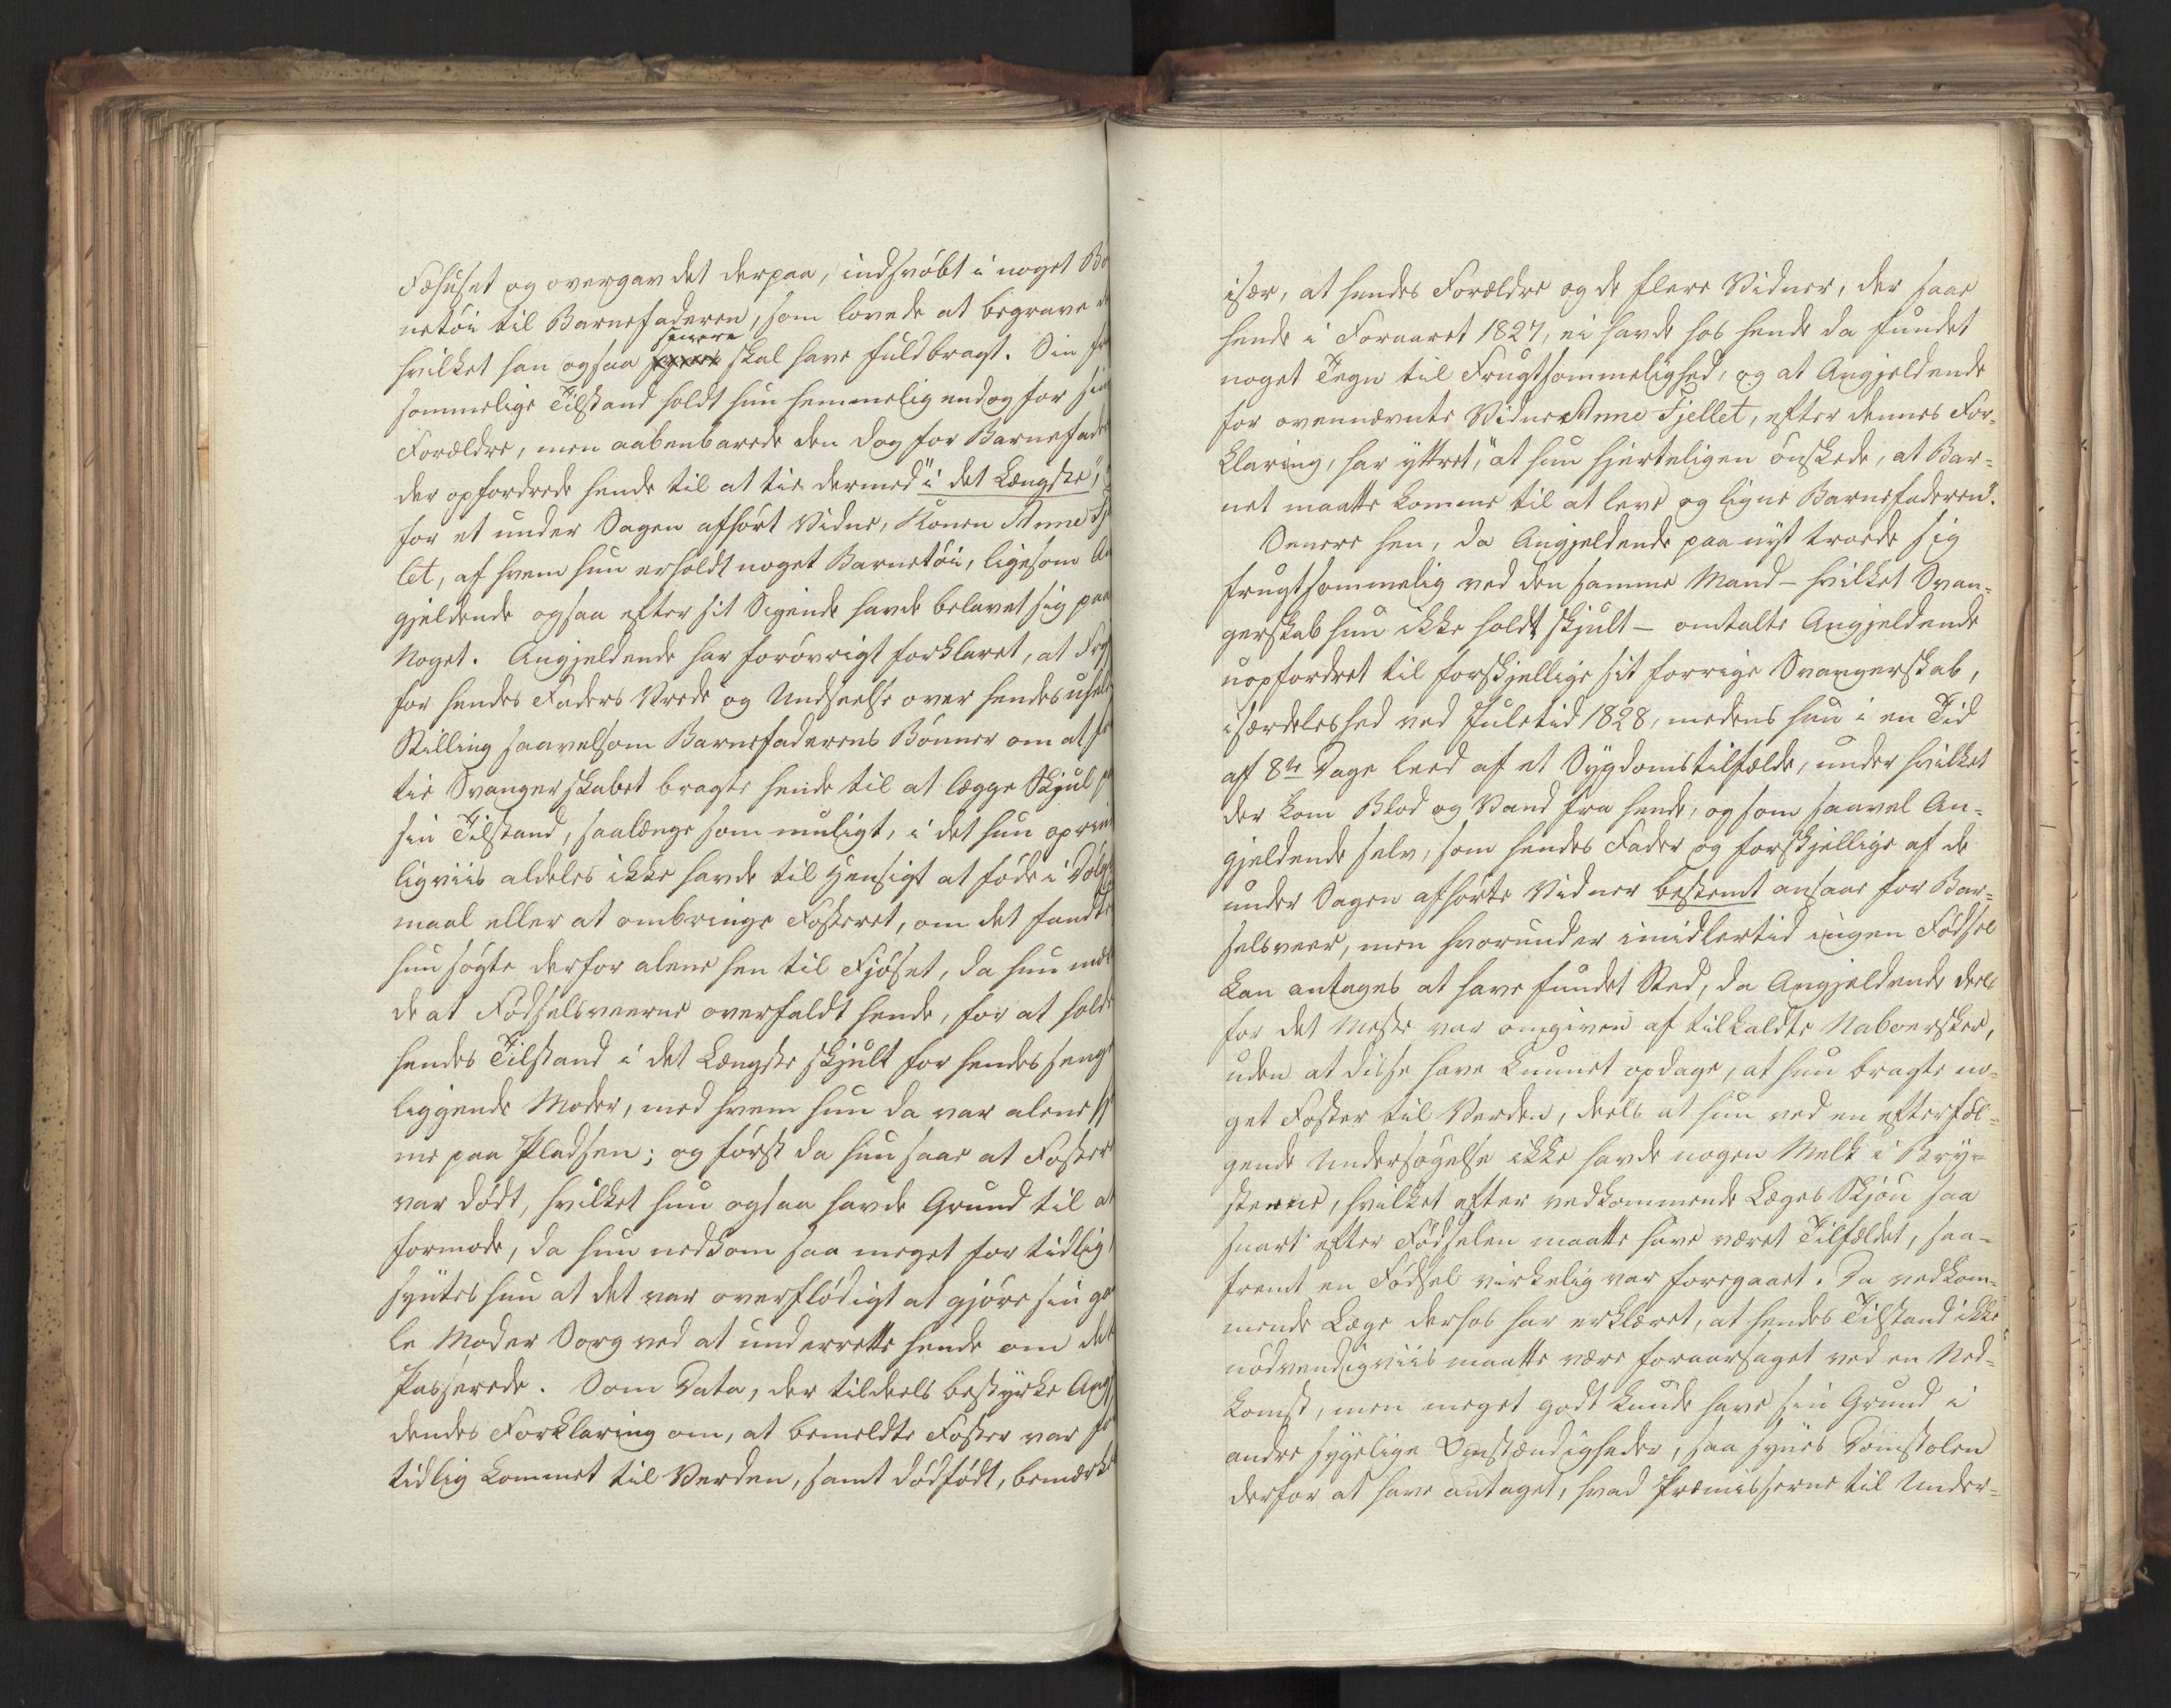 Fæhuset og overgav det derpaa, indsvøbt i noget Bø
netøi til Barnefaderen, som lovede at begrave
senere
hvilket han ogsaa skal have fuldbragt. Sin
sommelige Tilstand holdt hun hemmelig endog for
Forældre, men aabenbarede den dog for Barnefade
der opfordrede hende til at tie dermed "i det Længste",
for et under Sagen afhørt Vidne, Konen Anne
let, af hvem hun erholdt noget Barnetøi, ligesom
gjeldende ogsaa efter sit Sigende havde belavet sig paa
Noget. Angjeldende har forøvrigt forklaret, at
for hendes Faders Vrede og Undseelse over hendes
Stilling saavelsom Barnefaderens Bønner om at
tie Svangerskabet bragte hende til at lægge Skjul
sin Tilstand, saalænge som muligt, i det hun
ligviis aldeles ikke havde til Hensigt at føde i Dølgs
maal eller at ombringe Fosteret, om det
hun søgte derfor alene hen til Fjøset, da hun
de at Fødselsveerne overfaldt hende, for at holde
hendes Tilstand i det Længste skjult for hendes senge
liggende Moder, med hvem hun da var alene
me paa Pladsen; og først da hun saae at Fosteret
var dødt, hvilket hun ogsaa havde Grund til at
formode, da hun nedkom saa meget for tidlig,
syntes hun at det var overflødigt at gjøre sin
le Moder Sorg ved at underrette hende om det
Passerede. Som Data, der tildeels bestyrke
dendes Forklaring om, at bemeldte Foster var
tidlig kommet til Verden, samt dødfødt, bemærkes
især, at hendes Forældre og de flere Vidner, der saae
hende i Foraaret 1827, ei havde hos hende da fundet
noget Tegn til Frugtsommelighed, og at Angjeldende
for ovennævnte Vidne Anne Fjellet, efter dennes For-
klaring, har yttret, "at hun hjerteligen ønskede, at Bar-
net maatte komme til at leve og ligne Barnefaderen".
Senere hen, da Angjeldende paa nyt troede sig
frugtsommelig ved den samme Mand – hvilket Svan-
gerskab hun ikke holdt skjult – omtalte Angjeldende
uopfordret til forskjellige sit forrige Svangerskab,
isærdeleshed ved Juletid 1828, medens hun i en Tid
af 8te Dage leed af et Sygdomstilfælde, under hvilket
der kom Blod og Vand fra hende, og som saavel An-
gjeldende selv, som hendes Fader og forskjellige af de
under Sagen afhørte Vidner bestemt ansaae for Bar-
selsveer, men hvorunder imidlertid ingen Fødsel
kan antages at have fundet Sted, da Angjeldende deels
for det Meste var omgiven af tilkaldte Naboersker,
uden at disse have kunnet opdage, at hun bragte no-
get Foster til Verden, deels at hun ved en efterføl-
gende Undersøgelse ikke havde nogen Melk i Bry-
sterne, hvilket efter vedkommende Læges Skjøn saa
snart efter Fødselen maatte have været Tilfældet, saa-
fremt en Fødsel virkelig var foregaaet. Da vedkom-
mende Læge derhos har erklæret, at hendes Tilstand ikke
nødvendigviis maatte være foraarsaget ved en Ned-
komst, men meget godt kunde have sin Grund i
andre sygelige Omstændigheder, saa synes Domstolen
derfor at have antaget, hvad Præmisserne til Under-